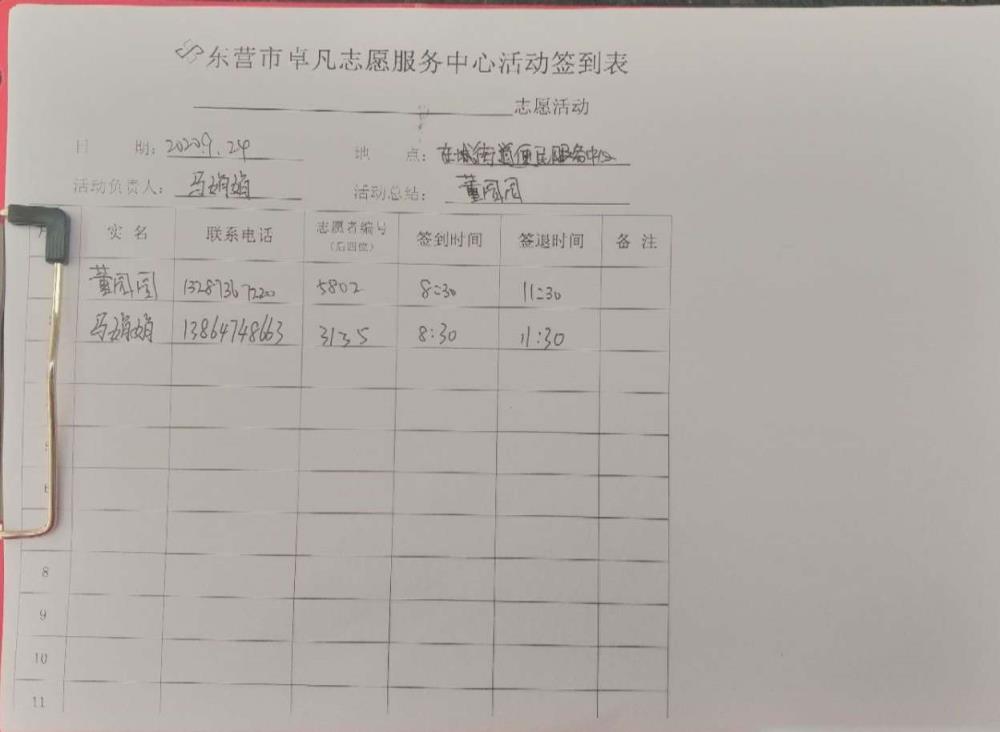 东营市卓凡志愿服务中心活动签到表
志愿活动
日 期: 2020.9.24 地 点: 东城街道便民服务中心
活动负责人: 马娟娟 活动总结: 董圆圆
实 名 联系电话 志愿者编号 (后四位) 签到时间 签退时间 备 注
董圆圆 13287367220 5802 8:30 11:30
马娟娟 13864748663 3135 8:30 11:30
8
9
10
11